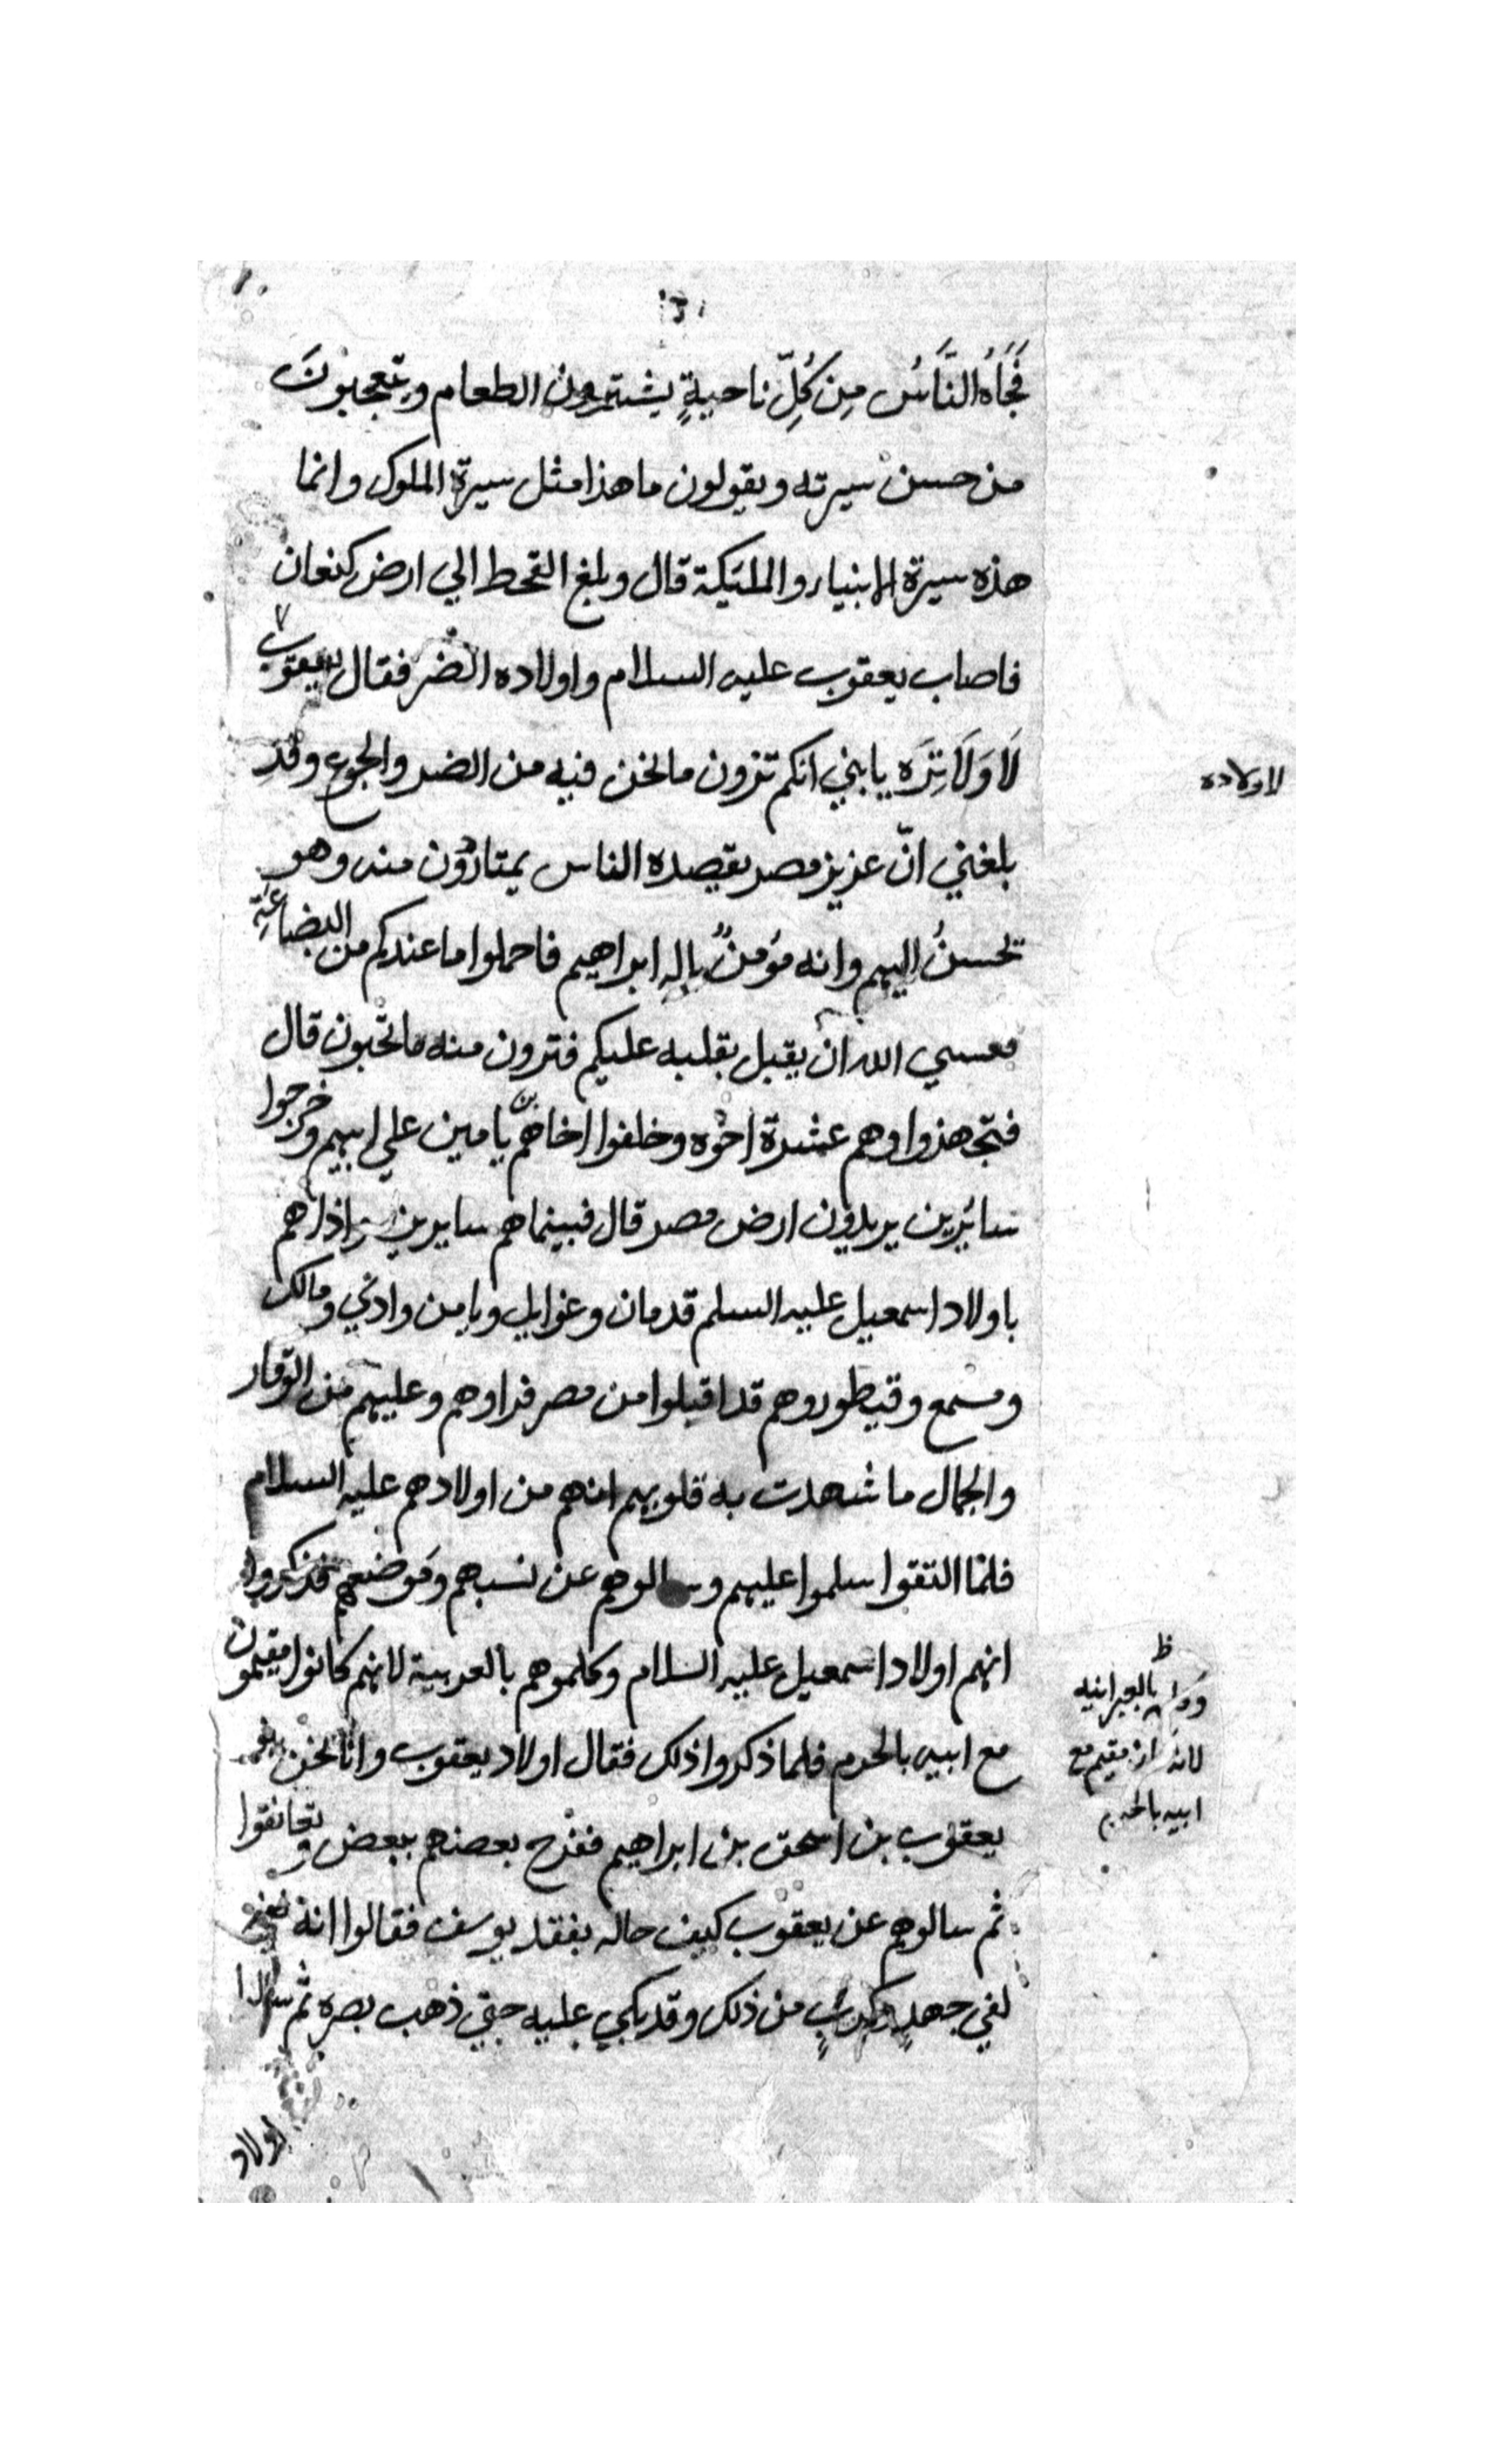 فَجَاءَهُ النَّاسُ مِن كُلِّ ناحيةٍ يشترون الطعام ويتعجبونَ
من حسن سيرته ويقولون ما هذا مثل سيرة الملوك وانما
هذه سيرة الانبياء والمليكة قال وبلغ القحط الي ارض كنعان
فاصاب يعقوب عليه السلام واولاده الضر فقال يعقوب
يا بني انكم ترون ما نحن فيه من الضر والجوع وقد
لاولاده
بلغني انّ عزيز مصر يقصده الناس يمتارون منه وهو
يحسنُ اليهم وانه مؤمنٌ بإلهِ ابراهيم فاحملوا ما عندكم من البضاعةِ
فعسي الله ان يقبل بقلبه عليكم فترون منه ما تحبون قال
فتجهزوا وهم عشرة اخوه وخلفوا اخاهم بنيامين علي ابيهم وخرجوا
سائرين يريدون ارض مصر قال فبينما هم سايرين واذا هم
باولاد اسمعيل عليه السلم قدمان و ويامن وادني ومالك
ومسمع وقيطور وهم قد اقبلوا من مصر فراوهم وعليهم من الوقار
والجمال ما شهدت به قلوبهم انهم من اولادهم عليه السلام
فلما التقوا سلموا عليهم وسالوهم عن نسبهم ومَوضعهم فذكروا
انهم اولاد اسمعيل عليه السلام وكلموهم بالعربية لانهم كانوا مقيمون
ظ
بالعبرانيه
مع ابيه بالحرم فلما ذكروا ذلك فقال اولاد يعقوب وانا نحن
مقيم مع
ابيه بالحرم
يعقوب بن اسحق بن ابراهيم ففرح بعضهم ببعض وتعانقوا
ثم سالوهم عن يعقوب كيف حاله بفقد يوسف فقالوا انه
لفي جهدٍ وكربٍ من ذلك وقد بكي عليه حتي ذهب بصره ثم
اولاد